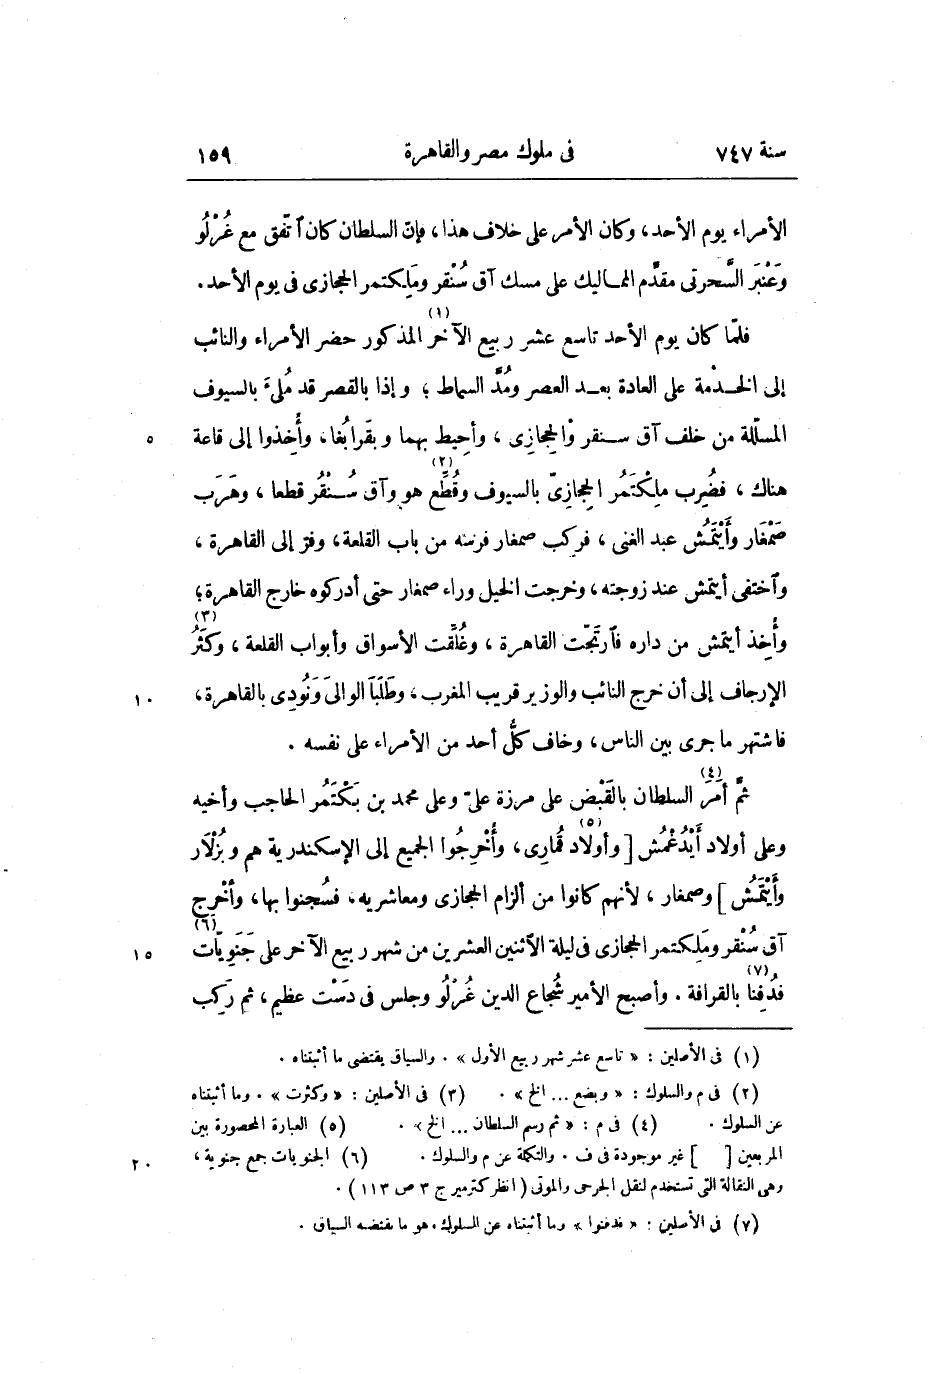 سنة ٧٤٧ فى ملوك مصر والقاهرة ١٥٩
الأمراء يوم الأحد، وكان الأمر على خلاف هذا، فإنّ السلطان كان ٱتّفق مع غُرْلُو
وَعَنْبَر السَّحرتى مقدَّم المماليك على مسك آق سُنْقر ومَلِكتمر الحجازى فى يوم الأحد.
فلمّا كان يوم الأحد تاسع عشر ربيع الآخر (١) المذكور حضر الأمراء والنائب
إلى الخدْمة على العادة بعد العصر ومُدّ السماط؛ وإذا بالقصر قد مُلىء بالسيوف
المسلّلة من خلف آق سنقر والحِجازِى، وأُحيط بهما وبقَرابُغا، وأُخذوا إلى قاعة ٥
هناك، فضُرِب مَلِكْتَمُر الحِجازِىّ بالسيوف وقُطِّع (٢) هو وآق سُنْقُر قطعا، وهَرَب
صَمْغَار وأَيْتَمُش عبد الغنى، فركب صمغار فرسه من باب القلعة، وفرّ إلى القاهرة،
وٱختفى أيتمش عند زوجته، وخرجت الخيل وراء صمغار حتى أدركوه خارج القاهرة؛
وأُخِذ أيتمش من داره فٱرتَجّت القاهرة، وغُلِّقت الأسواق وأبواب القلعة، وكَثُر (٣)
الإرجاف إلى أن خرج النائب والوزير قريب المغرب، وطَلَبَا الوالىَ وَنُودِى بالقاهرة، ١٠
فاشتهر ما جرى بين الناس، وخاف كلُّ أحد من الأمراء على نفسه.
ثمّ أَمَرَ (٤) السلطان بالقَبْض على مرزة علىّ وعلى محمد بن بَكْتَمُر الحاجب وأخيه
وعلى أولاد أَيْدُغْمُش [وأولاد (٥) قُمَارِى، وأُخْرِجُوا الجميع إلى الإسكندرية هم وبُزْلار
وأَيْتَمُش] وصمغار، لأنهم كانوا من ألزام الحجازى ومعاشريه، فسُجنوا بها، وأُخْرِج
آق سُنْقر ومَلِكتمر الحجازى فى ليلة الٱثنين العشرين من شهر ربيع الآخر على جَنَوِيّات (٦) ١٥
فدُفِنا (٧) بالقرافة. وأصبح الأمير شُجاع الدين غُرْلُو وجلس فى دَسْت عظيم، ثم رَكِب
(١) فى الأصلين: «تاسع عشر شهر ربيع الأول». والسياق يقتضى ما أثبتناه.
(٢) فى م والسلوك: «وبضع ... الخ». (٣) فى الأصلين: «وكثرت». وما أثبتناه
عن السلوك. (٤) فى م: «ثم رسم السلطان ... الخ». (٥) العبارة المحصورة بين
المربعين [ ] غير موجودة فى ف. والتكملة عن م والسلوك. (٦) الجنويات جمع جنوية، ٢٠
وهى النقالة التى تستخدم لنقل الجرحى والموتى (انظر كترمير ج ٣ ص ١١٣).
(٧) فى الأصلين: «فدفنوا» وما أثبتناه عن السلوك. هو ما يقتضيه السياق.